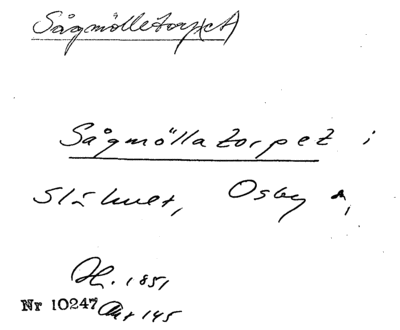 Sågmölletorp(et)
Sågmöllatorpet i
Slähult, Osby s,
H. 1851
Nr 10247 145